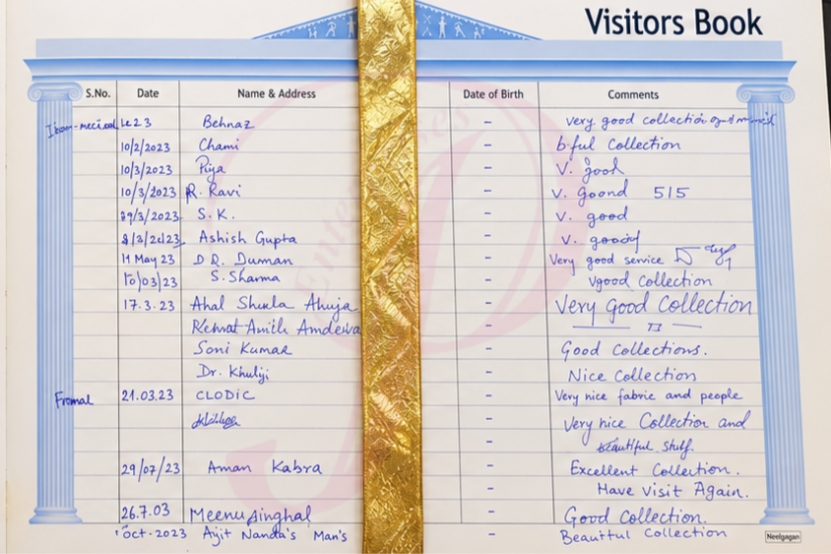 Visitors Book
S.No. Date Name & Address Date of Birth Comments
Behnaz - very good collection
10/2/2023 Chami - b.ful Collection
10/3/2023 Piya - V. good
10/3/2023 R. Ravi - V. goond 5|5
29/3/2023 S.K. - V. good
8/3/2023 Ashish Gupta - V. good
11 May 23 D R. Duman - Very good service
10/03/23 S. Sharma - Vgood Collection
17.3.23 Ahal Shukla Ahuja - Very Good Collection
-
Soni Kumar - Good Collections.
Dr. Khulji - Nice Collection
21.03.23 CLODIC - Very nice fabric and people
- Very nice Collection and
- beautiful stuff.
29/07/23 Aman Kabra - Excellent Collection.
- Have Visit Again.
26.7.03 Meenu Singhal - Good Collection.
Oct-2023 Ajit Nanda's Man's - Beautful Collection
Neelgagan